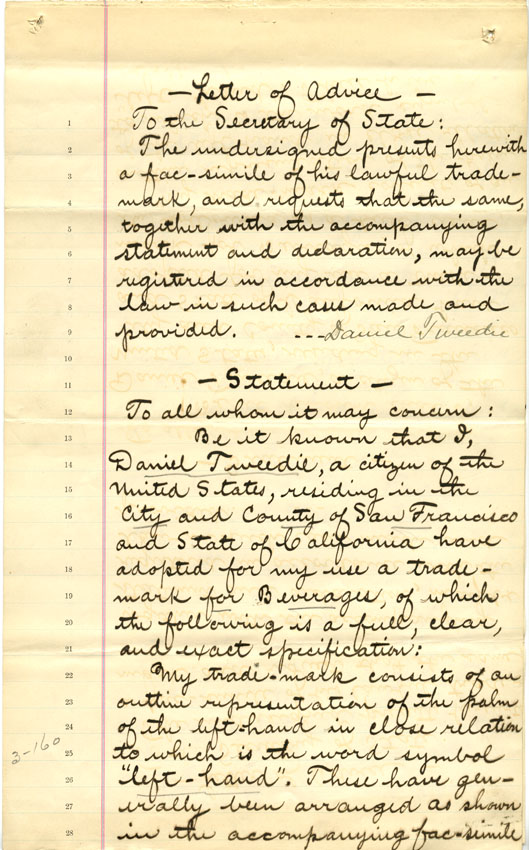 — Letter of Advice —
1 To the Secretary of State:
2 The undersigned presents herewith
3 a fac-simile of his lawful trade-
4 mark, and requests that the same,
5 together with the accompanying
6 statement and declaration, may be
7 registered in accordance with the
8 law in such cases made and
9 provided. --- Daniel Tweedie
10
11 — Statement —
12 To all whom it may concern:
13 Be it known that I,
14 Daniel Tweedie, a citizen of the
15 United States, residing in the
16 City and County of San Francisco
17 and State of California have
18 adopted for my use a trade-
19 mark for Beverages, of which
20 the following is a full, clear,
21 and exact specification:
22 My trade-mark consists of an
23 outline representation of the palm
24 of the left hand in close relation
3-160
25 to which is the word symbol
26 "left-hand". These have gen-
27 erally been arranged as shown
28 in the accompanying fac-simile